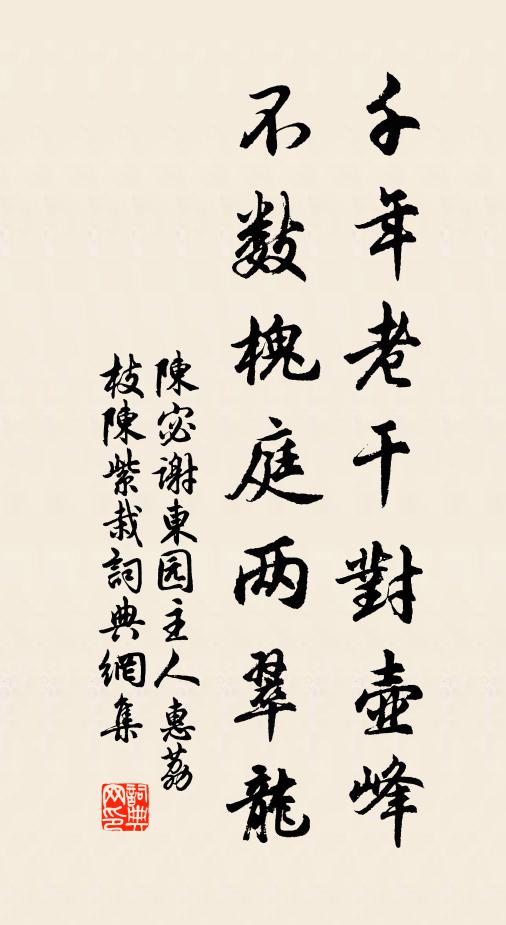 千年老干對壺峰
不数槐庭两翠龍
陳宓謝東园主人惠荔
枝陳紫栽詞典網集
詞典
网印